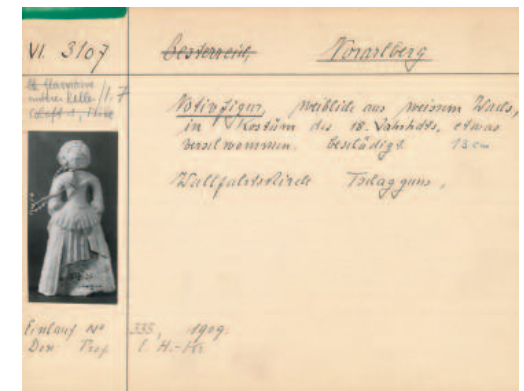 VI. 3107 Oesterreich, Vorarlberg
/1.7
Votivfigur, weiblich aus weissem Wachs,
in Kostüm des 18. Jahrhdts, etwas
verschwommen. beschädigt. 13 cm
Wallfahrtskirche Tschagguns,
Einlauf No 335, 1909.
Don Prof